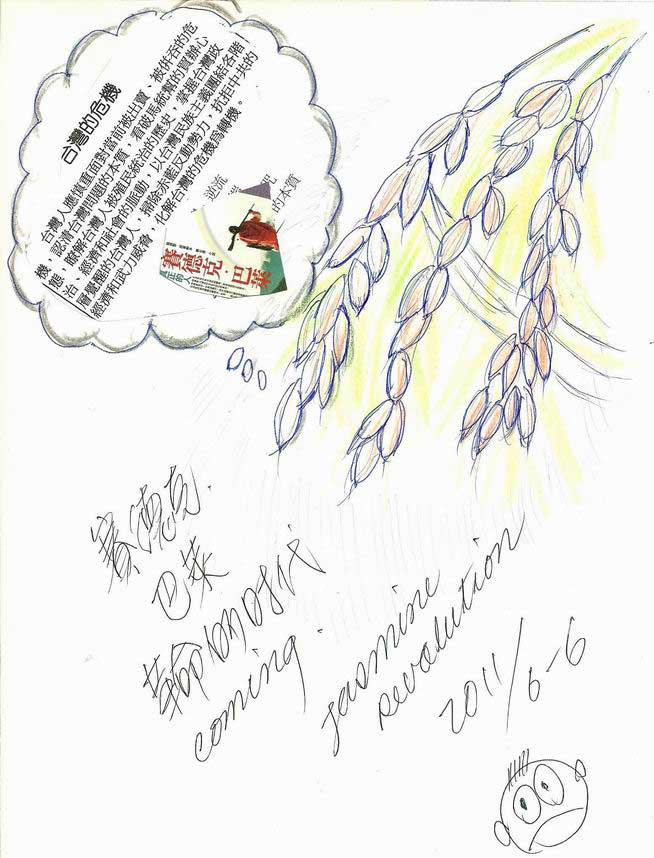 台灣的危機
台灣人應慎重面對當前被出賣、被併吞的危
機，認清台灣問題的本質，看破馬統幫的買辦心
態，瞭解台灣人被殖民統治的歷史，掌握台灣政
治、經濟和社會的脈動，以台灣民族主義團結各階
層覺醒的台灣人，掃除赤藍反動勢力，抗拒中共的
經濟和武力威脅，化解台灣的危機為轉機。
逆流
的本質
賽德克・巴萊
真正的人
賽德克.
巴萊
革命的时代
coming.
Jasmine
Revolution
2011/6-6